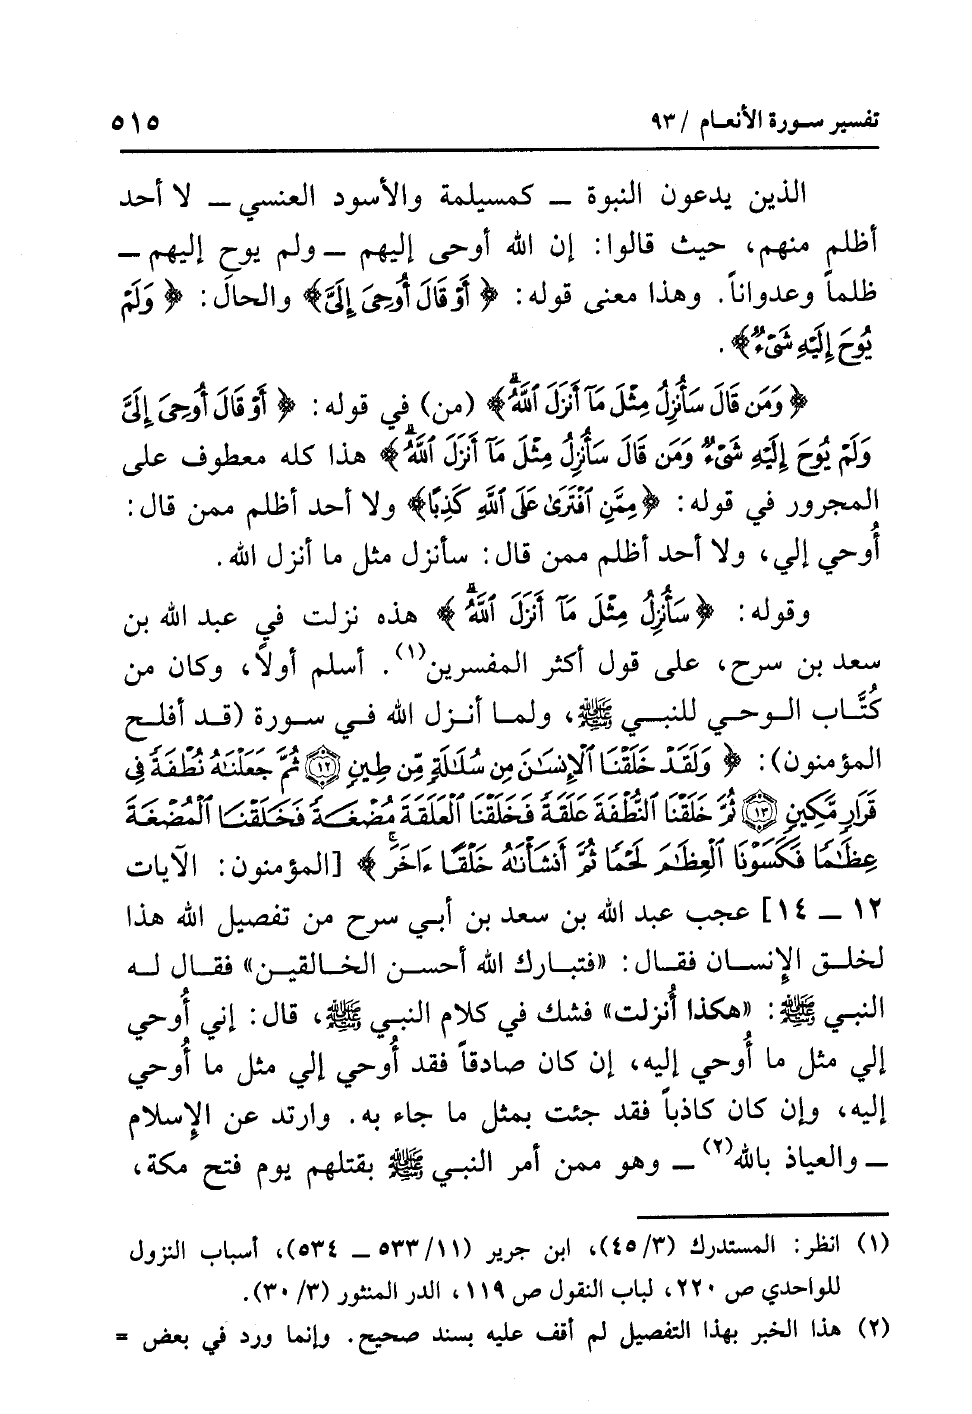 تفسير سورة الأنعام / ٩٣
٥١٥
الذين يدعون النبوة ــ كمسيلمة والأسود العنسي ــ لا أحد
أظلم منهم، حيث قالوا: إن الله أوحى إليهم ــ ولم يوح إليهم ــ
ظلماً وعدواناً. وهذا معنى قوله: ﴿أَوْ قَالَ أُوحِىَ إِلَىَّ﴾ والحال: ﴿وَلَمْ
يُوحَ إِلَيْهِ شَىْءٌ﴾.
﴿وَمَن قَالَ سَأُنزِلُ مِثْلَ مَآ أَنزَلَ ٱللَّهُۗ﴾ (من) في قوله: ﴿أَوْ قَالَ أُوحِىَ إِلَىَّ
وَلَمْ يُوحَ إِلَيْهِ شَىْءٌ وَمَن قَالَ سَأُنزِلُ مِثْلَ مَآ أَنزَلَ ٱللَّهُۗ﴾ هذا كله معطوف على
المجرور في قوله: ﴿مِمَّنِ ٱفْتَرَىٰ عَلَى ٱللَّهِ كَذِبًا﴾ ولا أحد أظلم ممن قال:
أُوحي إلي، ولا أحد أظلم ممن قال: سأنزل مثل ما أنزل الله.
وقوله: ﴿سَأُنزِلُ مِثْلَ مَآ أَنزَلَ ٱللَّهُۗ﴾ هذه نزلت في عبد الله بن
سعد بن سرح، على قول أكثر المفسرين(١). أسلم أولاً، وكان من
كُتَّاب الوحي للنبي ﷺ، ولما أنزل الله في سورة (قد أفلح
المؤمنون): ﴿وَلَقَدْ خَلَقْنَا ٱلْإِنسَٰنَ مِن سُلَٰلَةٍ مِّن طِينٍ ١٢ ثُمَّ جَعَلْنَٰهُ نُطْفَةً فِى
قَرَارٍ مَّكِينٍ ١٣ ثُمَّ خَلَقْنَا ٱلنُّطْفَةَ عَلَقَةً فَخَلَقْنَا ٱلْعَلَقَةَ مُضْغَةً فَخَلَقْنَا ٱلْمُضْغَةَ
عِظَٰمًا فَكَسَوْنَا ٱلْعِظَٰمَ لَحْمًا ثُمَّ أَنشَأْنَٰهُ خَلْقًا ءَاخَرَۚ﴾ [المؤمنون: الآيات
١٢ ــ ١٤] عجب عبد الله بن سعد بن أبي سرح من تفصيل الله هذا
لخلق الإِنسان فقال: «فتبارك الله أحسن الخالقين» فقال له
النبي ﷺ: «هكذا أُنزلت» فشك في كلام النبي ﷺ، قال: إني أُوحي
إلي مثل ما أُوحي إليه، إن كان صادقاً فقد أُوحي إلي مثل ما أُوحي
إليه، وإن كان كاذباً فقد جئت بمثل ما جاء به. وارتد عن الإِسلام
ــ والعياذ بالله(٢) ــ وهو ممن أمر النبي ﷺ بقتلهم يوم فتح مكة،
(١) انظر: المستدرك (٤٥/٣)، ابن جرير (٥٣٣/١١ ــ ٥٣٤)، أسباب النزول
للواحدي ص ٢٢٠، لباب النقول ص ١١٩، الدر المنثور (٣٠/٣).
(٢) هذا الخبر بهذا التفصيل لم أقف عليه بسند صحيح. وإنما ورد في بعض =